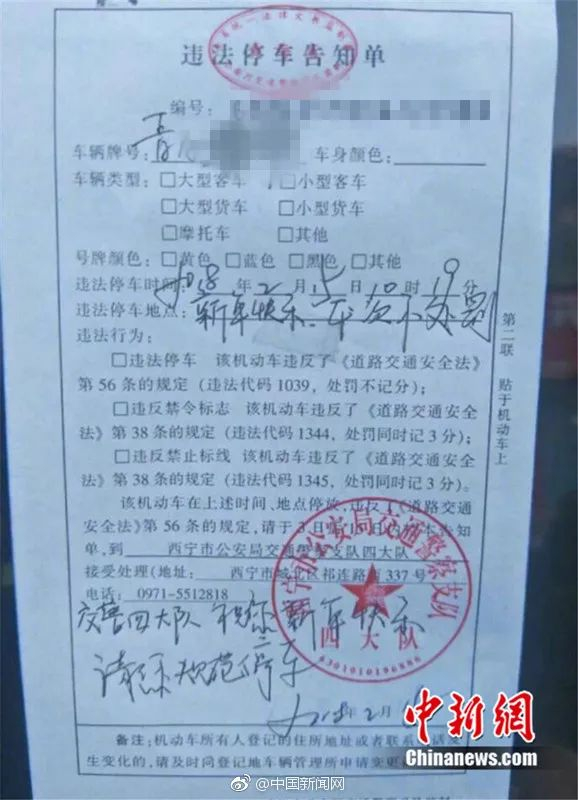 违法停车告知单
编号:
车辆牌号: 青 车身颜色:
车辆类型: □大型客车 □小型客车
□大型货车 □小型货车
□摩托车 □其他
号牌颜色: □黄色 □蓝色 □黑色 □其他
违法停车时间: 2018年2月15日10时19分
违法停车地点: 新年快乐、本次不处罚
违法行为:
□违法停车 该机动车违反了《道路交通安全法》
第56条的规定(违法代码1039,处罚不记分);
□违反禁令标志 该机动车违反了《道路交通安全
法》第38条的规定(违法代码1344,处罚同时记3分);
□违反禁止标线 该机动车违反了《道路交通安全
法》第38条的规定(违法代码1345,处罚同时记3分)。
该机动车在上述时间、地点停放,违反了《道路交通
安全法》第56条的规定,请于3日至15日内持本告知
单,到 西宁市公安局交通警察支队四大队
接受处理(地址: 西宁市城北区祁连路西337号
电话: 0971-5512818
交警四大队 祝您新年快乐
请您规范停车
2018年2月15
备注:机动车所有人登记的住所地址或者联系电话发
生变化的,请及时向登记地车辆管理所申请变更
第二联 贴于机动车上
西宁市公安局交通警察支队
四大队
6301010196886
中新网
Chinanews.com
@中国新闻网